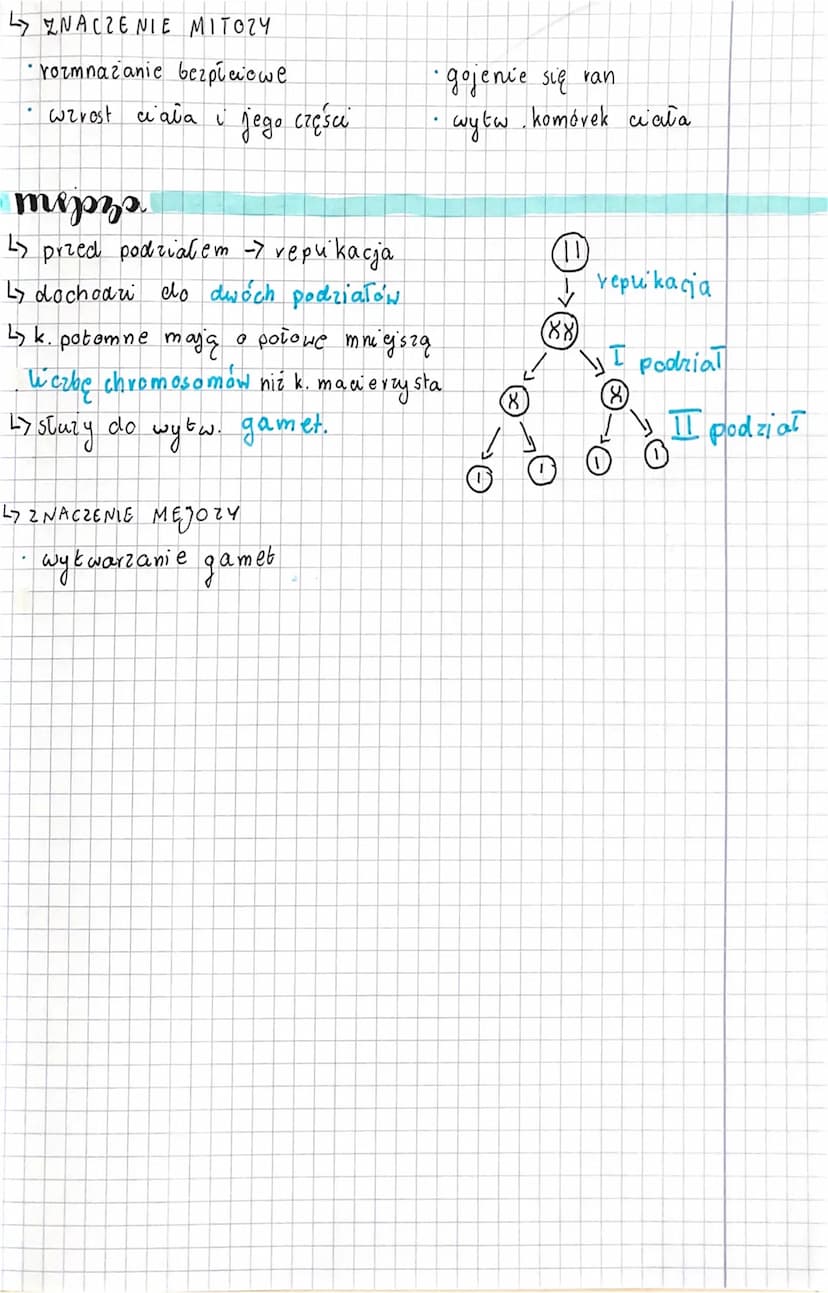 ↳ ZNACZENIE MITOZY
· rozmnażanie bezpłciowe
· wzrost ciała i jego części
· gojenie się ran
· wytw. komórek ciała
mejoza
↳ przed podziałem → replikacja
↳ dochodzi do dwóch podziałów
↳ k. potomne mają o połowę mniejszą
liczbę chromosomów niż k. macierzysta
↳ służy do wytw. gamet.
II
replikacja
XX
I podział
X X
II podział
I I I I
↳ ZNACZENIE MEJOZY
· wytwarzanie gamet